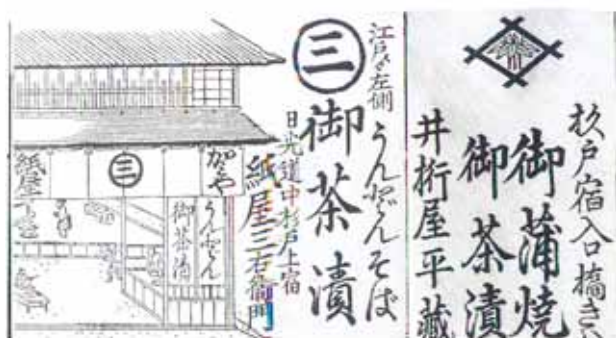 杉戸宿入口橋き
御蒲焼
御茶漬
井桁屋平蔵
江戸ゟ左側
うんどんそば
三
御茶漬
日光道中杉戸上宿
紙屋三右衛門
三
うんどん
御茶漬
紙屋